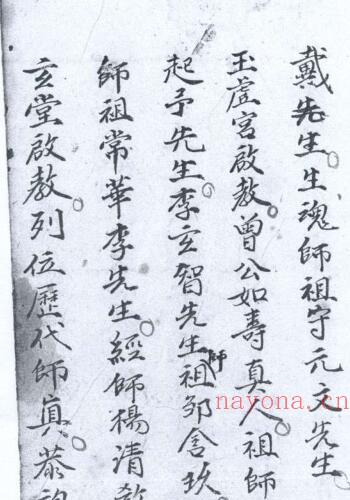 戴先生。生魂師祖守元文先生。
玉虛宮啟教。曾公如壽真人。祖師
起予先生。李玄智先生。師祖鄒舍玖
師祖常華李先生。經師楊清
玄堂啟教。列位歷代師真。恭
nayona.cn